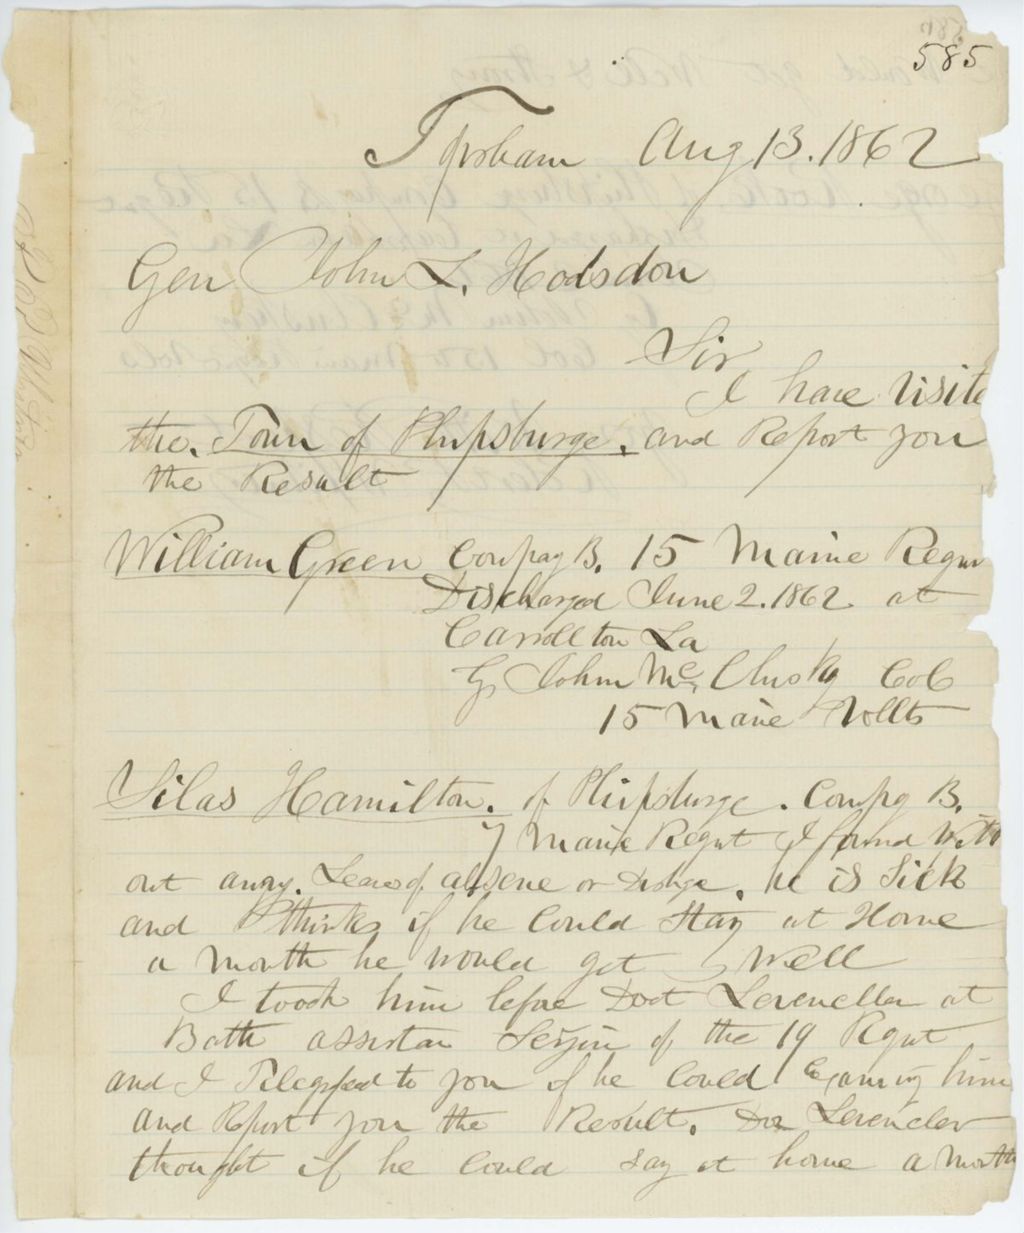 585
Topsham Aug 13. 1862
Gen John L. Hodsdon
Sir
I have visite
the. Town of Phipsburge. and Report you
the Result
William Green Compay B. 15 Maine Regm
Discharged June 2. 1862 at
Carrollton La
By John Mc Clusky Col
15 Maine Vollts
Silas Hamilton. of Phipsburge. Compy B.
7 Maine Regmt I found With
out anny. Leave of absene or . he is Sick
and thinks if he Could Stay at Home
a Month he would get Well
I took him before Doct at
Bath assistan of the 19 Regmt
and I to you if he Could him
and Report you the Result. Doc
thought if he Could say at home a Month